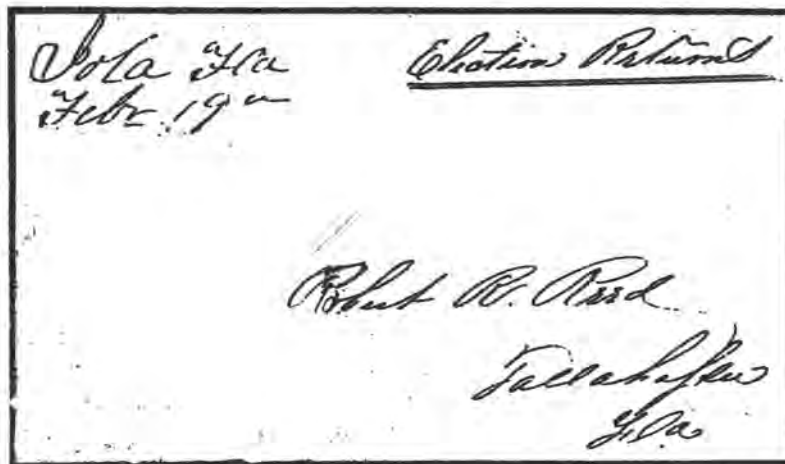 Iola Fla
Febr 19th
Election Returns
Robert R. Reid
Tallahassee
Fla